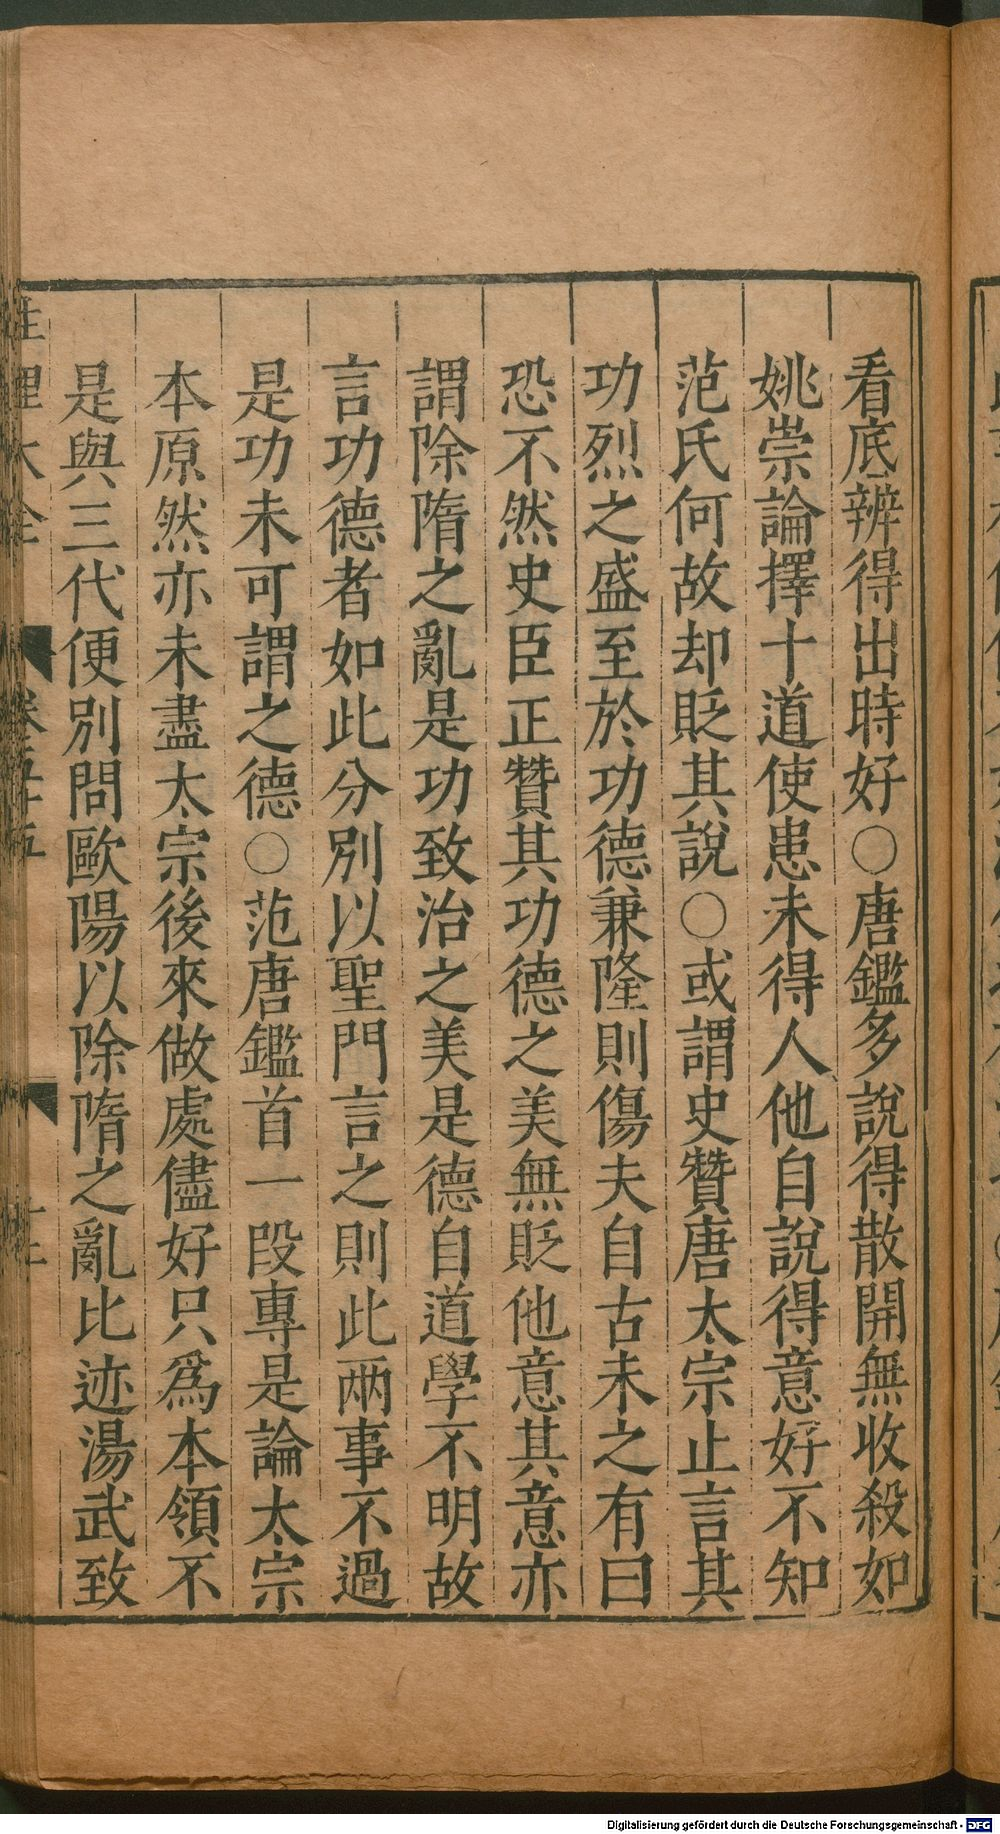 看底辨得出時好○唐鑑多說得散開無收殺如
姚崇論擇十道使患未得人他自說得意好不知
范氏何故却貶其說○或謂史贊唐太宗止言其
功烈之盛至於功德兼隆則傷夫自古未之有曰
恐不然史臣正贊其功德之美無貶他意其意亦
謂除隋之亂是功致治之美是德自道學不明故
言功德者如此分別以聖門言之則此兩事不過
是功未可謂之德○范唐鑑首一段專是論太宗
本原然亦未盡太宗後來做處儘好只爲本領不
是與三代便別問歐陽以除隋之亂比迹湯武致
性理大全
Digitalisierung gefördert durch die Deutsche Forschungsgemeinschaft - DFG